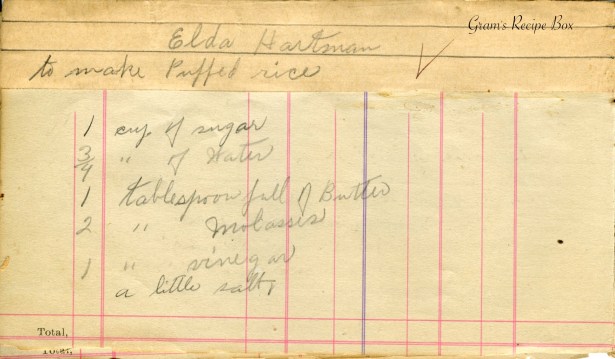 Gram's Recipe Box
Elda Hartman
to make Puffed rice
1 cup of sugar
3/4 " of Water
1 tablespoon full of Butter
2 " Molasses
1 " vinegar
a little salt,
Total,